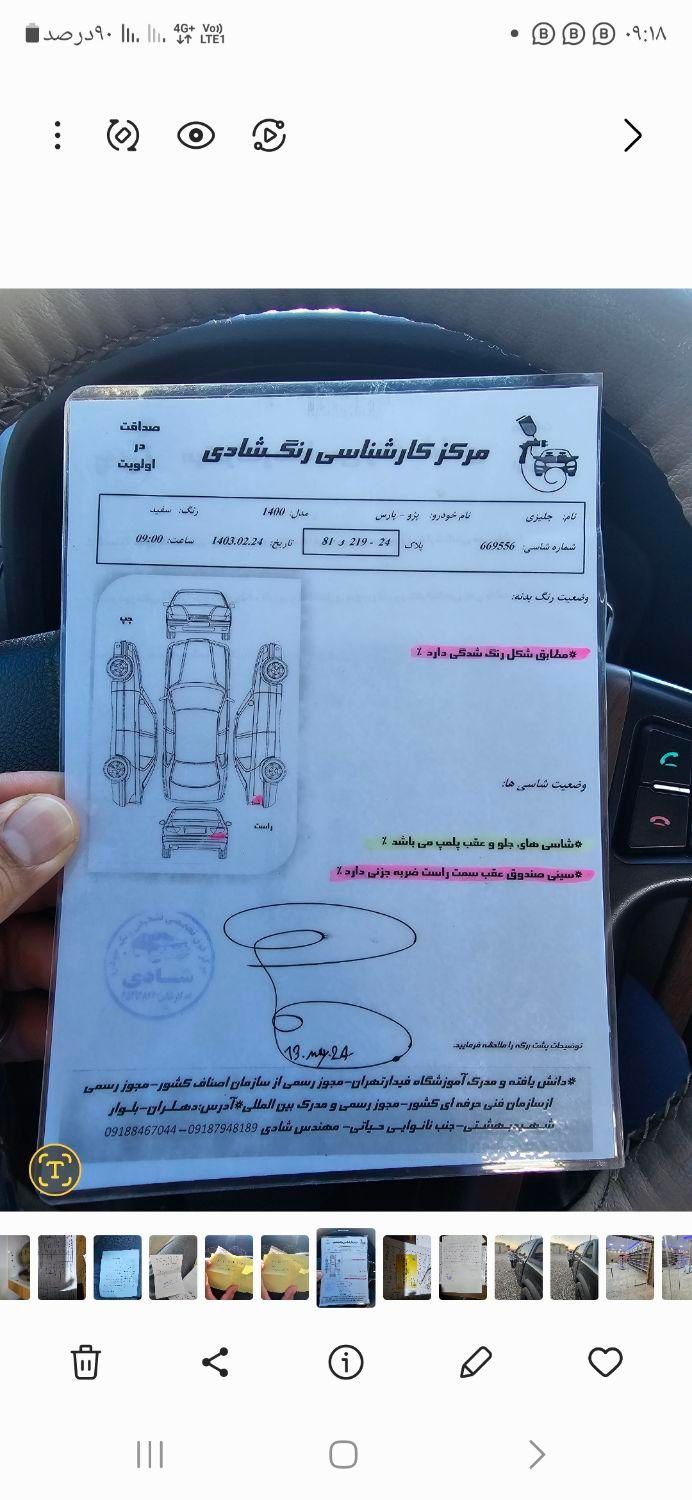 ۹۰درصد
4G+
Vo))
LTE1
۰۹:۱۸
صداقت
در
اولویت
مرکز کارشناسی رنگ شادی
نام: جلیزی نام خودرو: پژو - پارس مدل: 1400 رنگ: سفید
شماره شاسی: 669556 پلاک 24 - 219 د 81 تاریخ: 1403.02.24 ساعت: 09:00
وضعیت رنگ بدنه:
چپ
*مطابق شکل رنگ شدگی دارد ٪
وضعیت شاسی ها:
راست
*شاسی های جلو و عقب پلمپ می باشد ٪
*سینی صندوق عقب سمت راست ضربه جزئی دارد ٪
شادی
13.may.24
توضیحات پشت برگه را ملاحظه فرمایید.
*دانش یافته و مدرک آموزشگاه فیدارتهران-مجوز رسمی از سازمان اصناف کشور-مجوز رسمی
ازسازمان فنی حرفه ای کشور-مجوز رسمی و مدرک بین المللی*آدرس:دهلران-بلوار
شهیدبهشتی-جنب نانوایی حیاتی- مهندس شادی 09187948189 – 09188467044
T